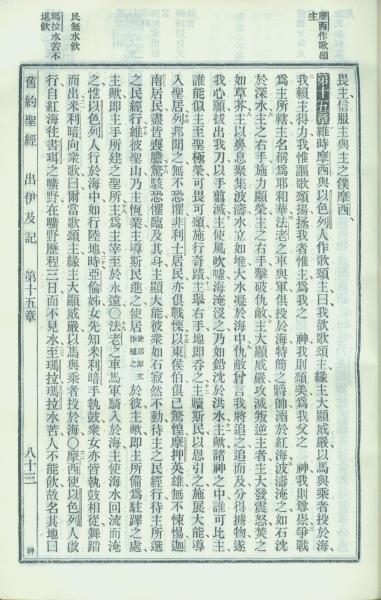 摩西作歌頌
主
畏主、信服主與主之僕摩西、
第十五章 維時摩西與以色列人作歌頌主曰、我欲歌頌主、緣主大顯威嚴、以馬與乘者投於海、
我賴主得力、我惟謳歌頌揚、拯我者惟主、為我之 神、我則頌美、為我父之 神、我則尊崇、爭戰
為主所轄、主名稱為耶和華、法老之車與軍、俱投於海、特簡之將帥、溺於紅海、波濤淹之、如石沈
於深水、主之右手、施力顯榮、主之右手、擊破仇敵、主大顯威嚴、攻滅叛逆主者、主大發震怒、焚之
如草芥、主以鼻息聚集波濤、水立如堆、大水凝於海中、仇敵曾言、我將追之、追而及、分得擄物、遂
我心願、拔出我刀、以手翦滅、主使風吹噓、海淹沒之、乃如鉛沈於洪水、主歟、諸神之中、誰可比主、
誰能似主、至聖極榮、可畏可頌、施行奇蹟、主舉右手、地即吞之、主贖斯民、以恩引之、施展大能、導
入聖居、列邦聞之、無不恐懼、非利士居民、亦俱戰慄、以東侯伯、俱已驚惶、摩押英雄、無不悚惕、迦
南居民、盡皆喪膽、驚駭恐懼、臨及其身、主顯大能、彼衆如石、寂然不動、待主之民經行、待主所選
之民經行、維彼聖山、乃主恆業、主導斯民、進之使居使居原文作植之於彼、主歟、即主所備為駐蹕之處、
主歟、即主手所建之聖所、主為主宰、至於永遠、○法老之車馬軍騎、入於海、主使海水回流而淹
之、惟以色列人行於海中、如行陸地、時亞倫姊女先知米利暗、手執鼗、衆女亦皆執鼗相從、舞蹈
而出、米利暗向衆歌曰、爾當歌頌主、緣主大顯威嚴、以馬與乘者投於海、○摩西使以色列人啟
行、自紅海往書珥之曠野、在曠野歷程三日、而不見水、至瑪拉、瑪拉水苦、人不能飲、故名其地曰
民無水飲
瑪拉水苦不
堪飲
舊約聖經 出伊及記 第十五章 八十三 神